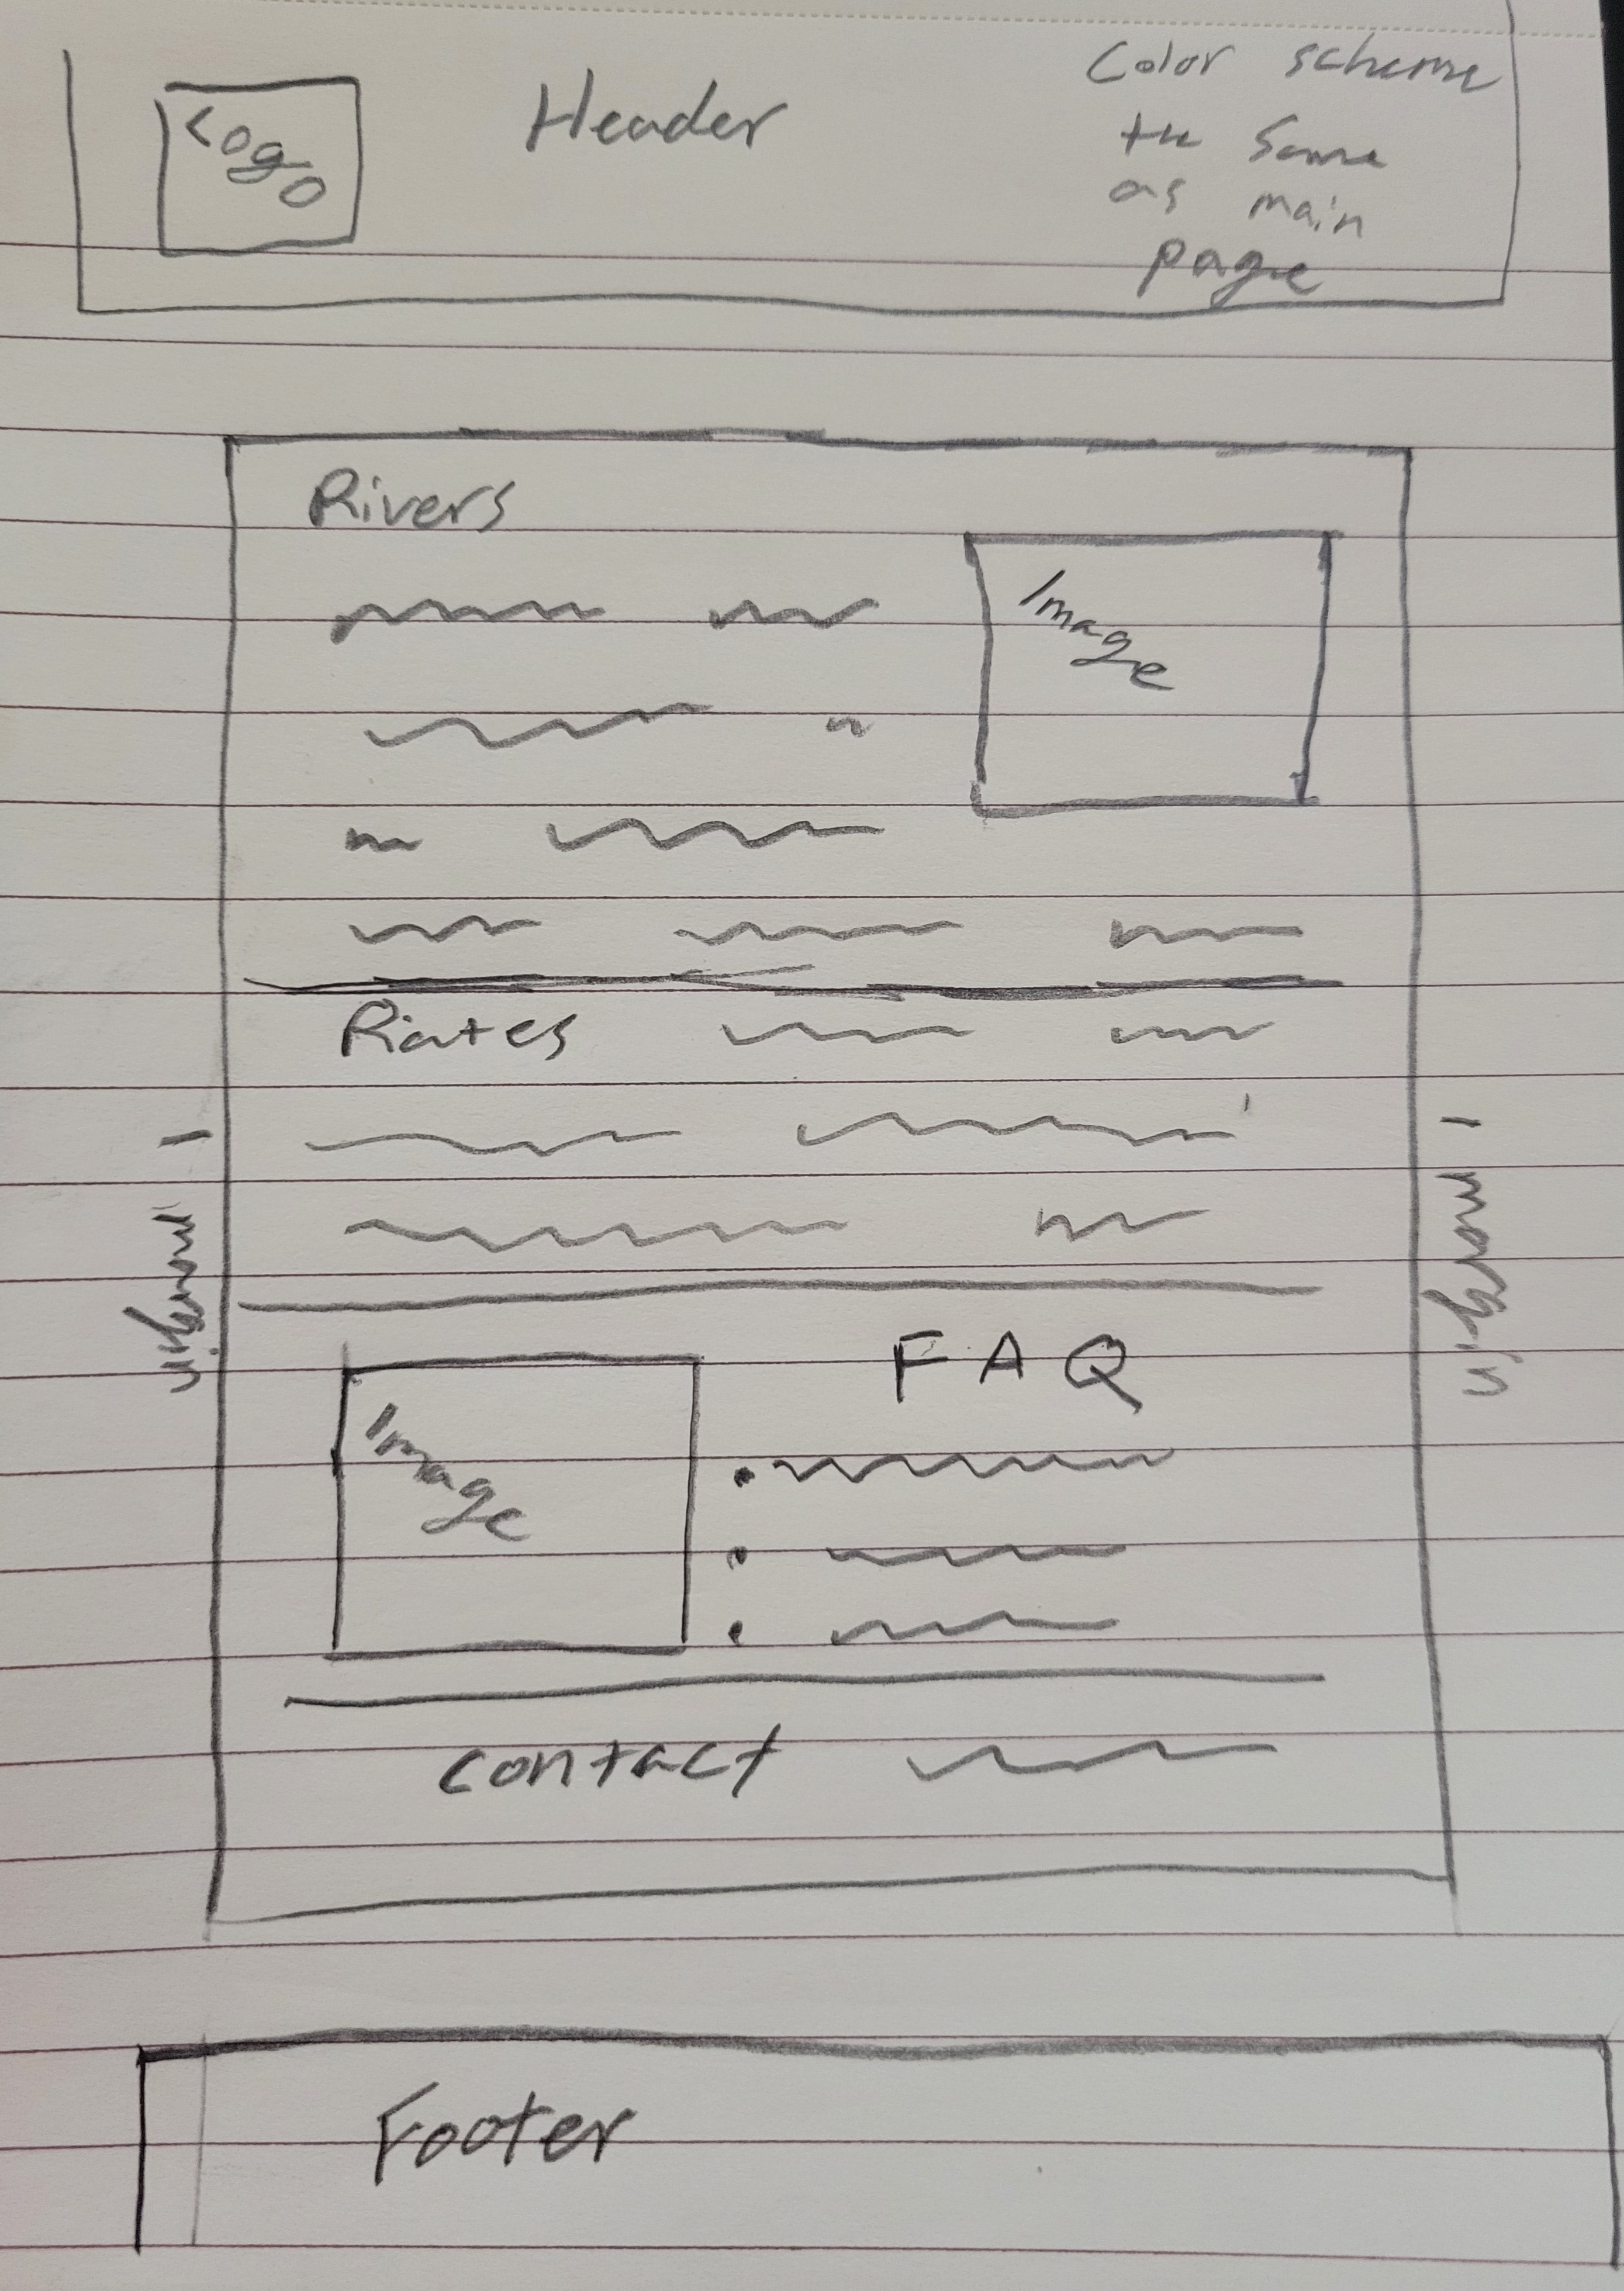 Logo
Header
Color scheme
the same
as main
page
Rivers
Image
Rates
margin
margin
FAQ
Image
contact
Footer